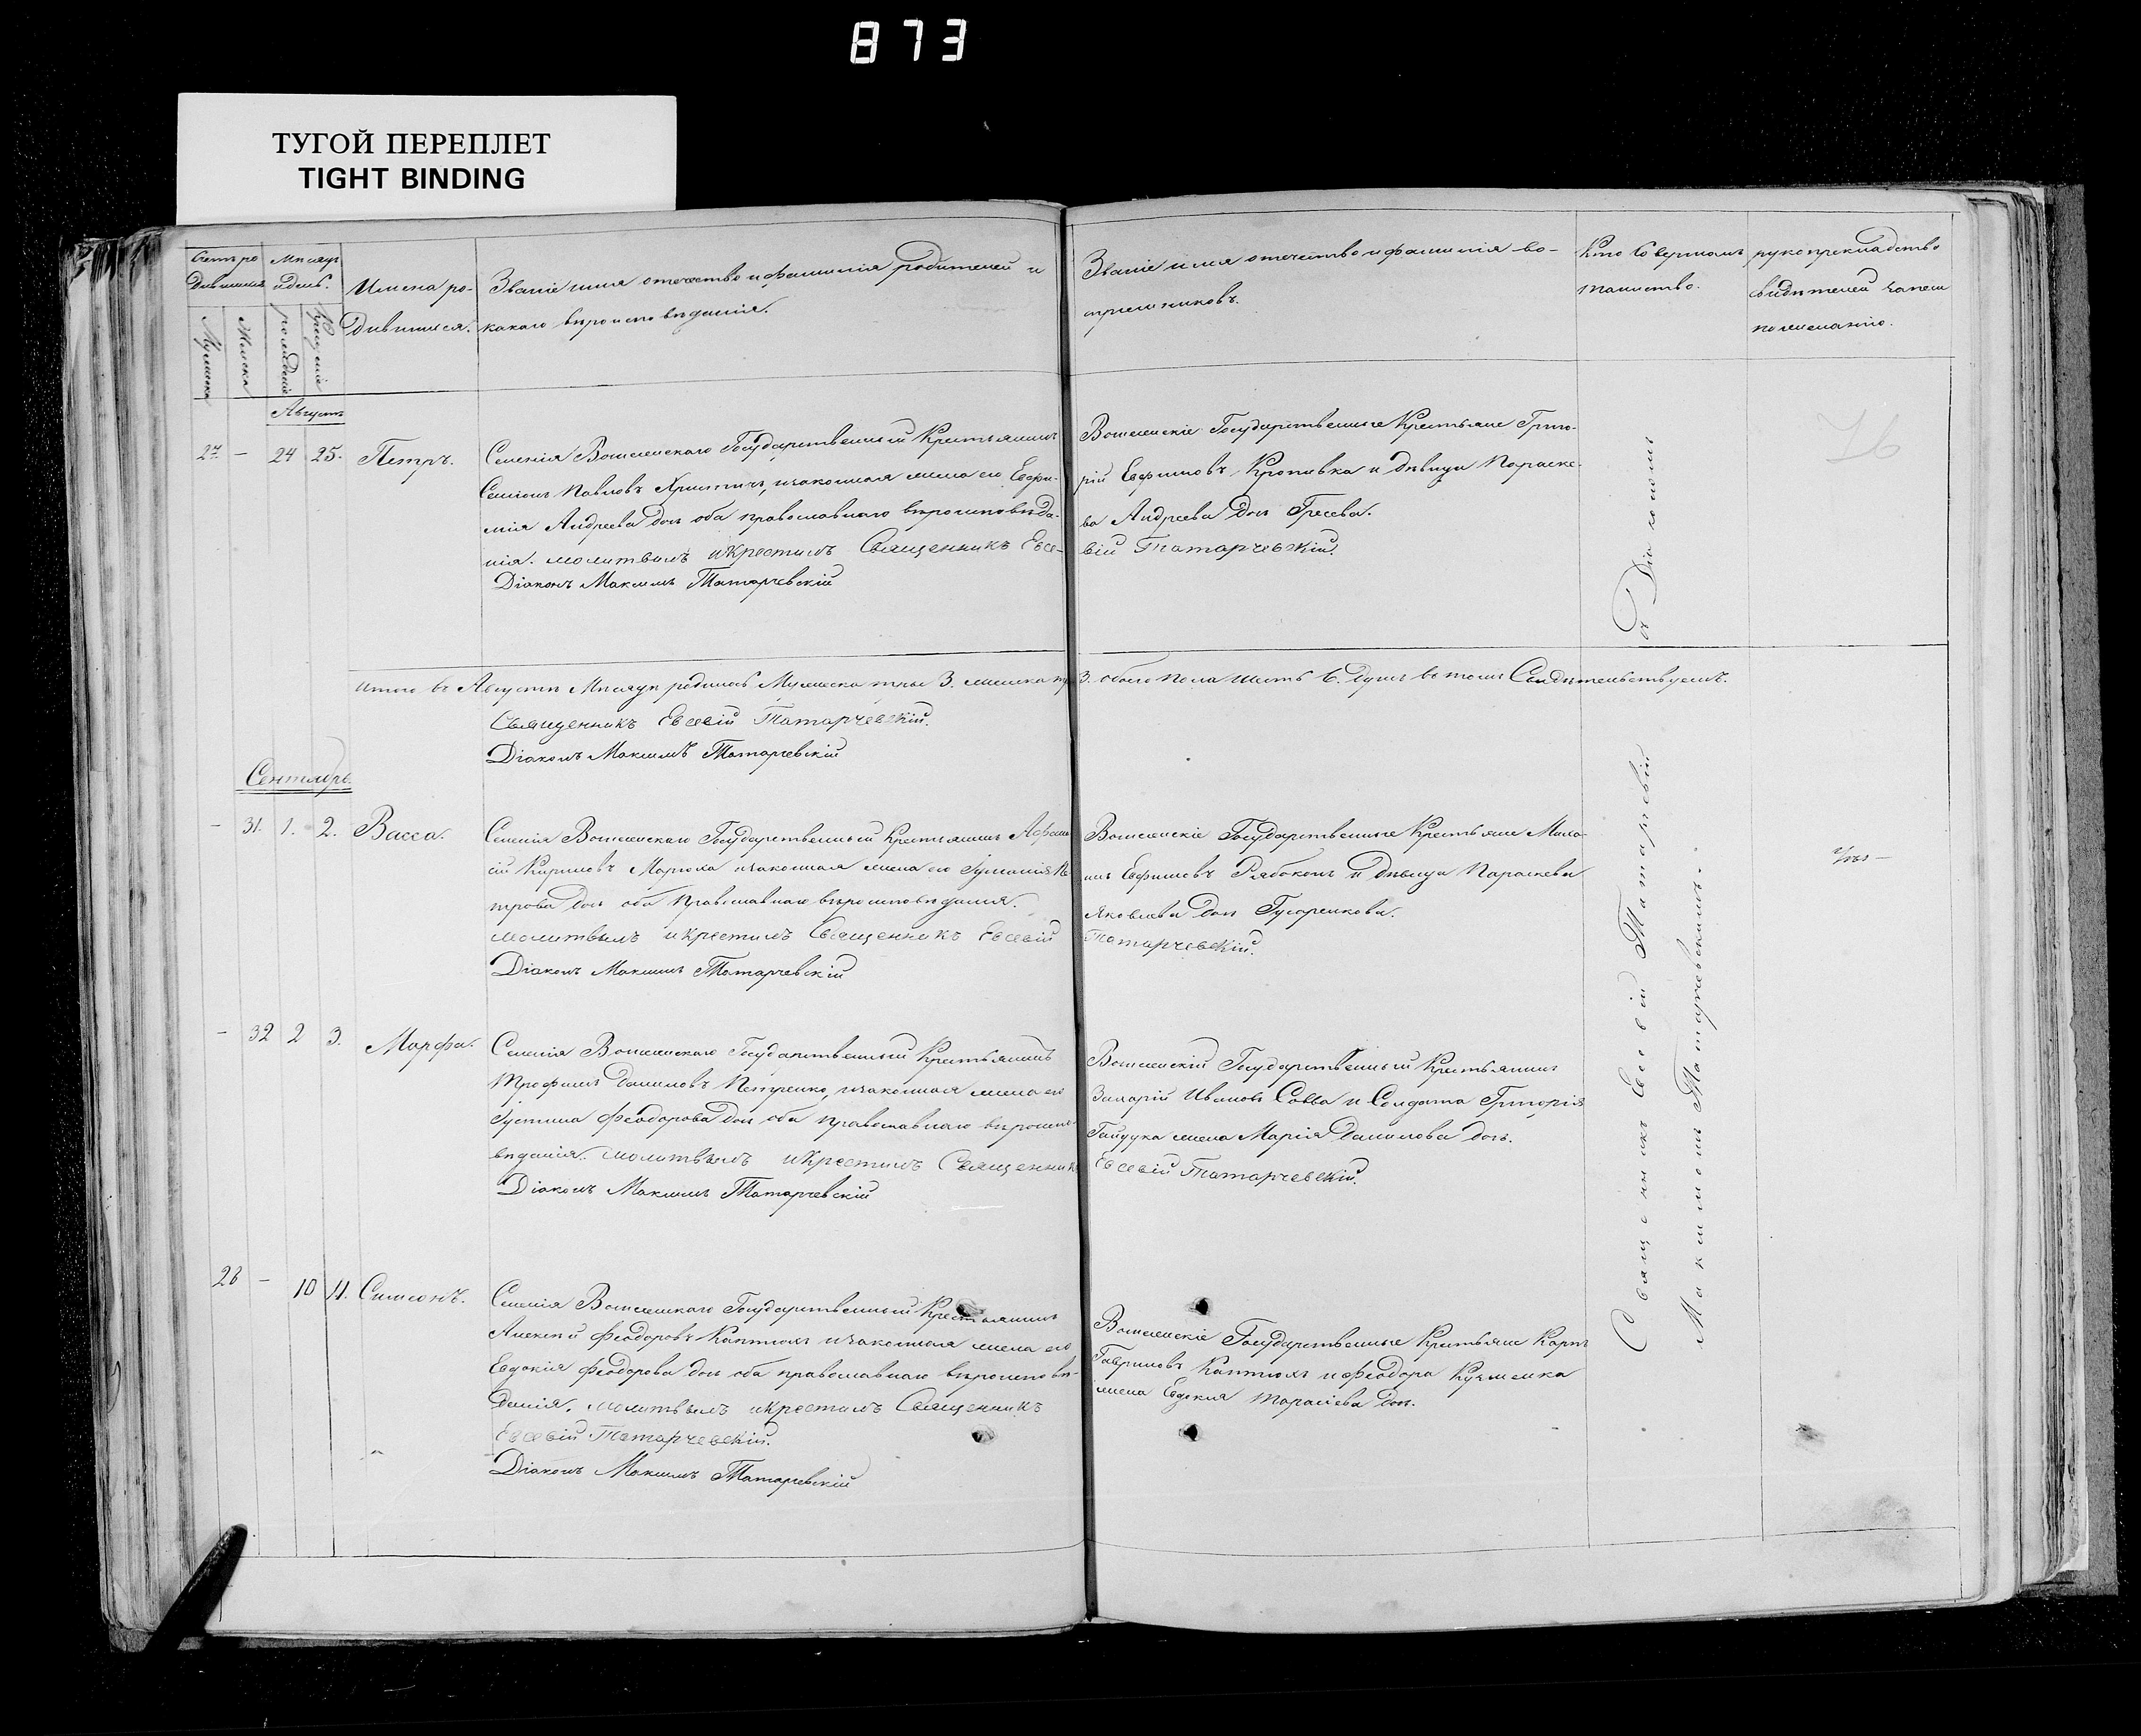 873
ТУГОЙ ПЕРЕПЛЕТ
TIGHT BINDING
Счетъ ро
дившихъ
Мѣсяцъ
и день.
Мужеска
Женска
рожденія
крещенія
Имена ро-
дившихся.
Званіе имя отечество и фамилія родителей и
какого вѣроисповѣданія.
Званіе имя отечество и фамилія во-
спріемниковъ.
Кто совершалъ
таинство.
рукоприкладство
свидѣтелей записи
по желанію.
76
Августъ
27 - 24 25. Петръ.
Селенія Государственный Крестьянинъ
Семіонъ Павловъ и законная жена его Евфи-
мія Андреева дочь оба православнаго вѣроисповѣда-
нія. молитвилъ и крестилъ Священникъ Евсе-
Діаконъ Максимъ Татарчевскій
Государственные Крестьяне Григо-
рій Евфимовъ Кропивка и дѣвица Параске-
ва Андреева дочь
вій Татарчевскій.
Итого въ Августѣ Мѣсяцѣ родилось Мужеска три 3. женска три
3. обоего пола шесть 6. душъ въ томъ Свидѣтельствуемъ.
Священникъ Евсевій Татарчевскій.
Діаконъ Максимъ Татарчевскій
Сентябрь.
- 31. 1. 2. Васса.
Селенія Государственный Крестьянинъ
Кириловъ и законная жена его Іуліанія Пе-
трова дочь оба Православнаго вѣроисповѣданія.
молитвилъ и крестилъ Священникъ Евсевій
Діаконъ Максимъ Татарчевскій
Государственные Крестьяне
Евфимовъ Рябоконь и дѣвица Параскева
Яковлева дочь Гусаренкова.
Татарчевскій.
- 32 2 3. Марфа.
Селенія Государственный Крестьянинъ
Трофимъ Даниловъ Петренко, и законная жена его
Іустина Феодорова дочь оба православнаго вѣроиспо-
вѣданія. молитвилъ и крестилъ Священникъ
Діаконъ Максимъ Татарчевскій
Государственный Крестьянинъ
Захарій Ивановъ Савва и Солдата Григорія
Гайдука жена Марія Данилова дочь.
Евсевій Татарчевскій.
28 - 10 11. Симеонъ.
Селенія Государственный Крестьянинъ
Алексій Феодоровъ Каптюхъ и законная жена его
Евдокія Феодорова дочь оба православнаго вѣроисповѣ-
данія. молитвилъ и крестилъ Священникъ
Евсевій Татарчевскій.
Діаконъ Максимъ Татарчевскій
Государственные Крестьяне Карпъ
Гавриловъ Каптюхъ и Феодора
жена Евдокія Тарасіева дочь.
Священникъ Евсевій Татарчевскій
съ Діакономъ
Максимомъ Татарчевскимъ.